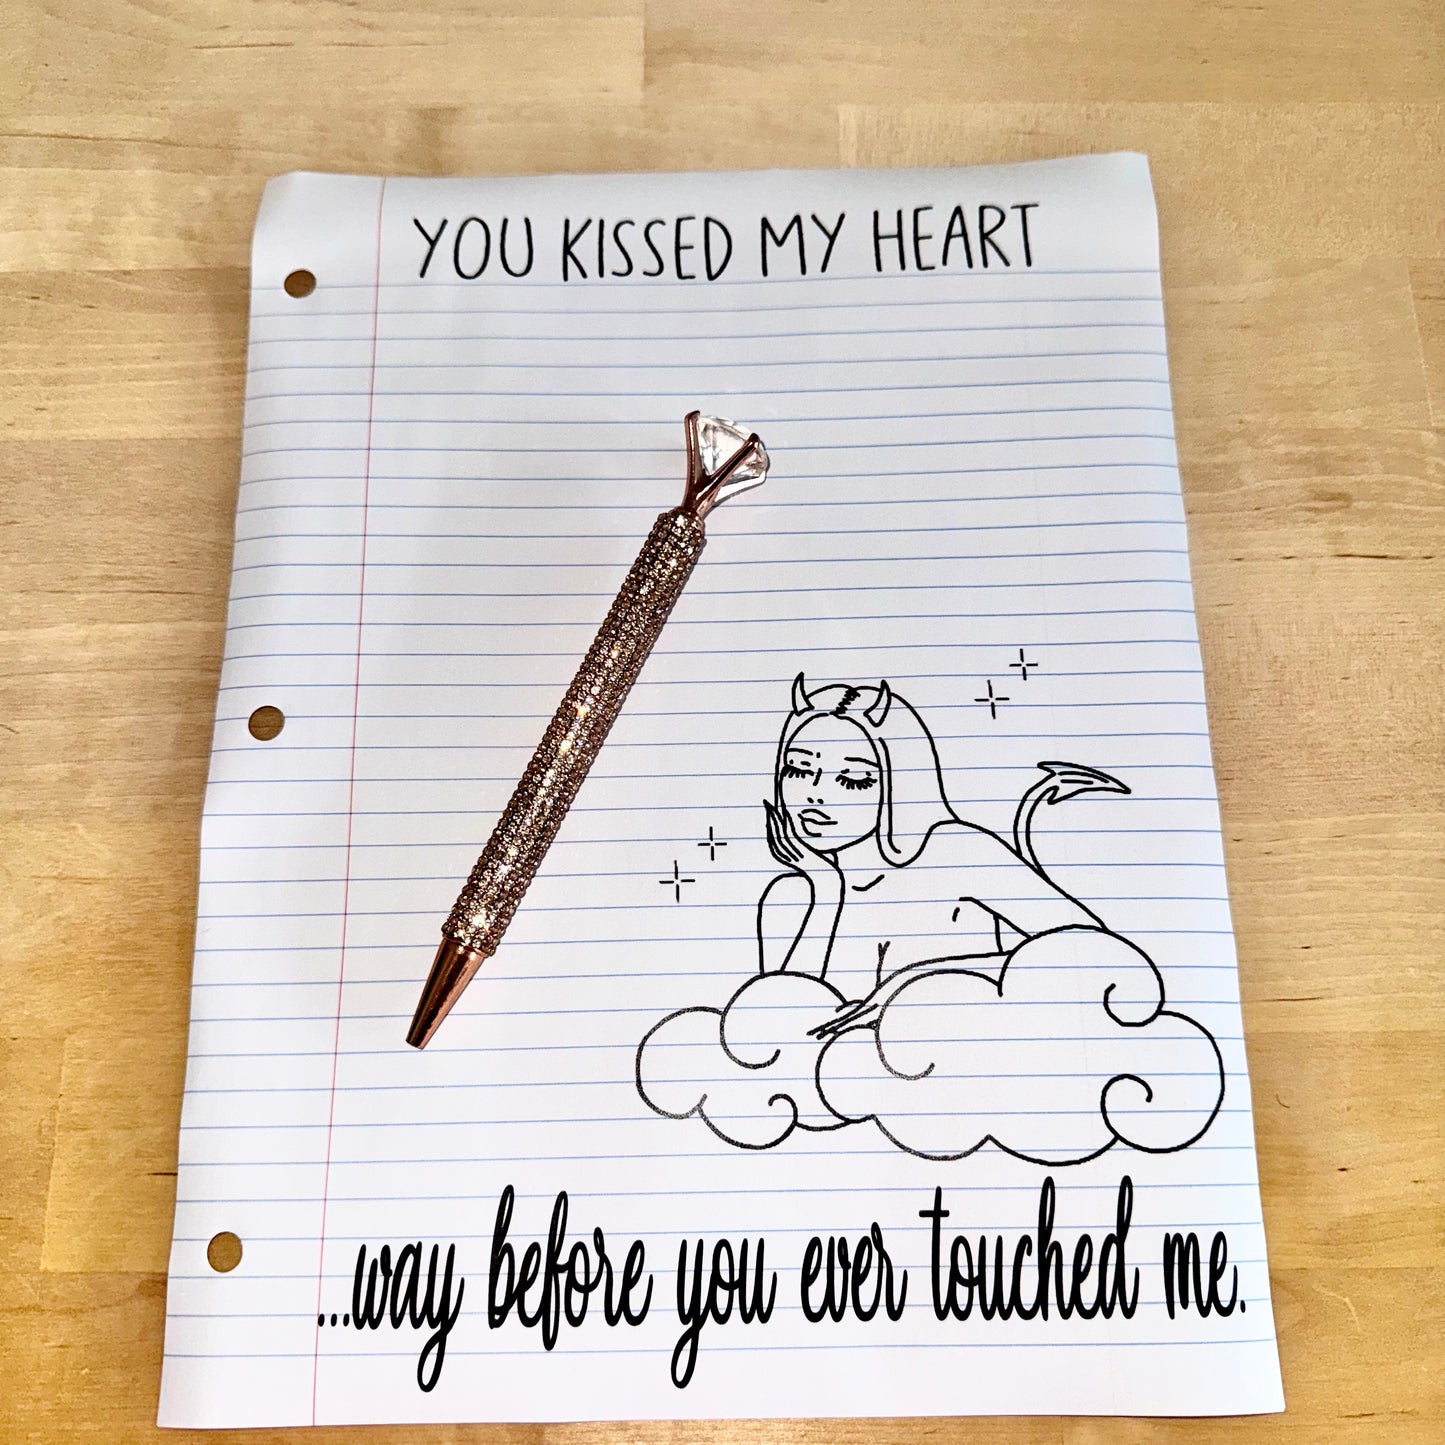 YOU KISSED MY HEART
...way before you ever touched me.